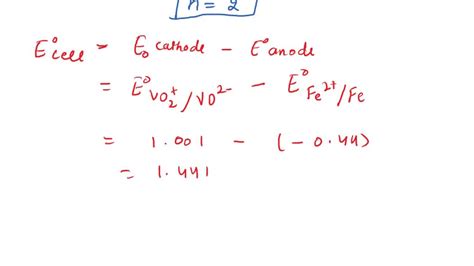 n = 2
E°cell = E° cathode - E° anode
= E°VO₂⁺/VO²⁻ - E°Fe²⁺/Fe
= 1.001 - (-0.44)
= 1.441